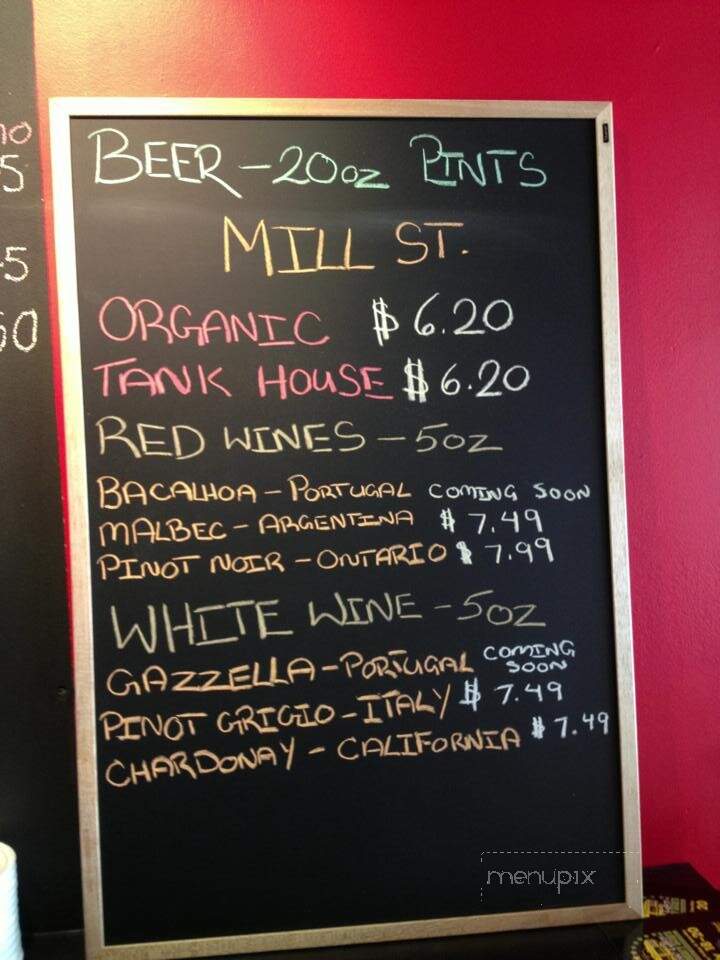 BEER - 20oz PINTS
MILL ST.
ORGANIC $6.20
TANK HOUSE $6.20
RED WINES - 5oz
BACALHOA - PORTUGAL COMING SOON
MALBEC - ARGENTINA $7.49
PINOT NOIR - ONTARIO $7.99
WHITE WINE - 5oz
GAZZELLA - PORTUGAL COMING SOON
PINOT GRIGIO - ITALY $7.49
CHARDONAY - CALIFORNIA $7.49
menupix